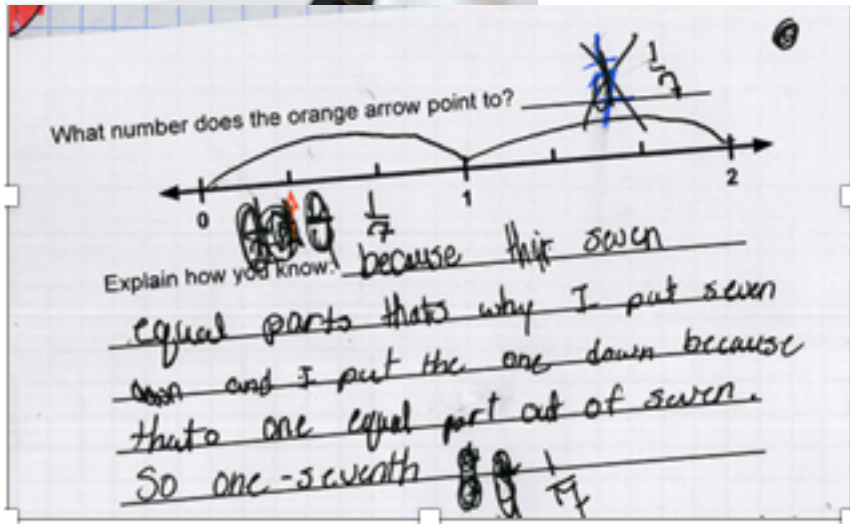 What number does the orange arrow point to? 1/7
0 1 2
1/7
Explain how you know: because thir seven
equal parts thats why I put seven
down and I put the one down because
thats one equal part out of seven.
So one-seventh 1/7